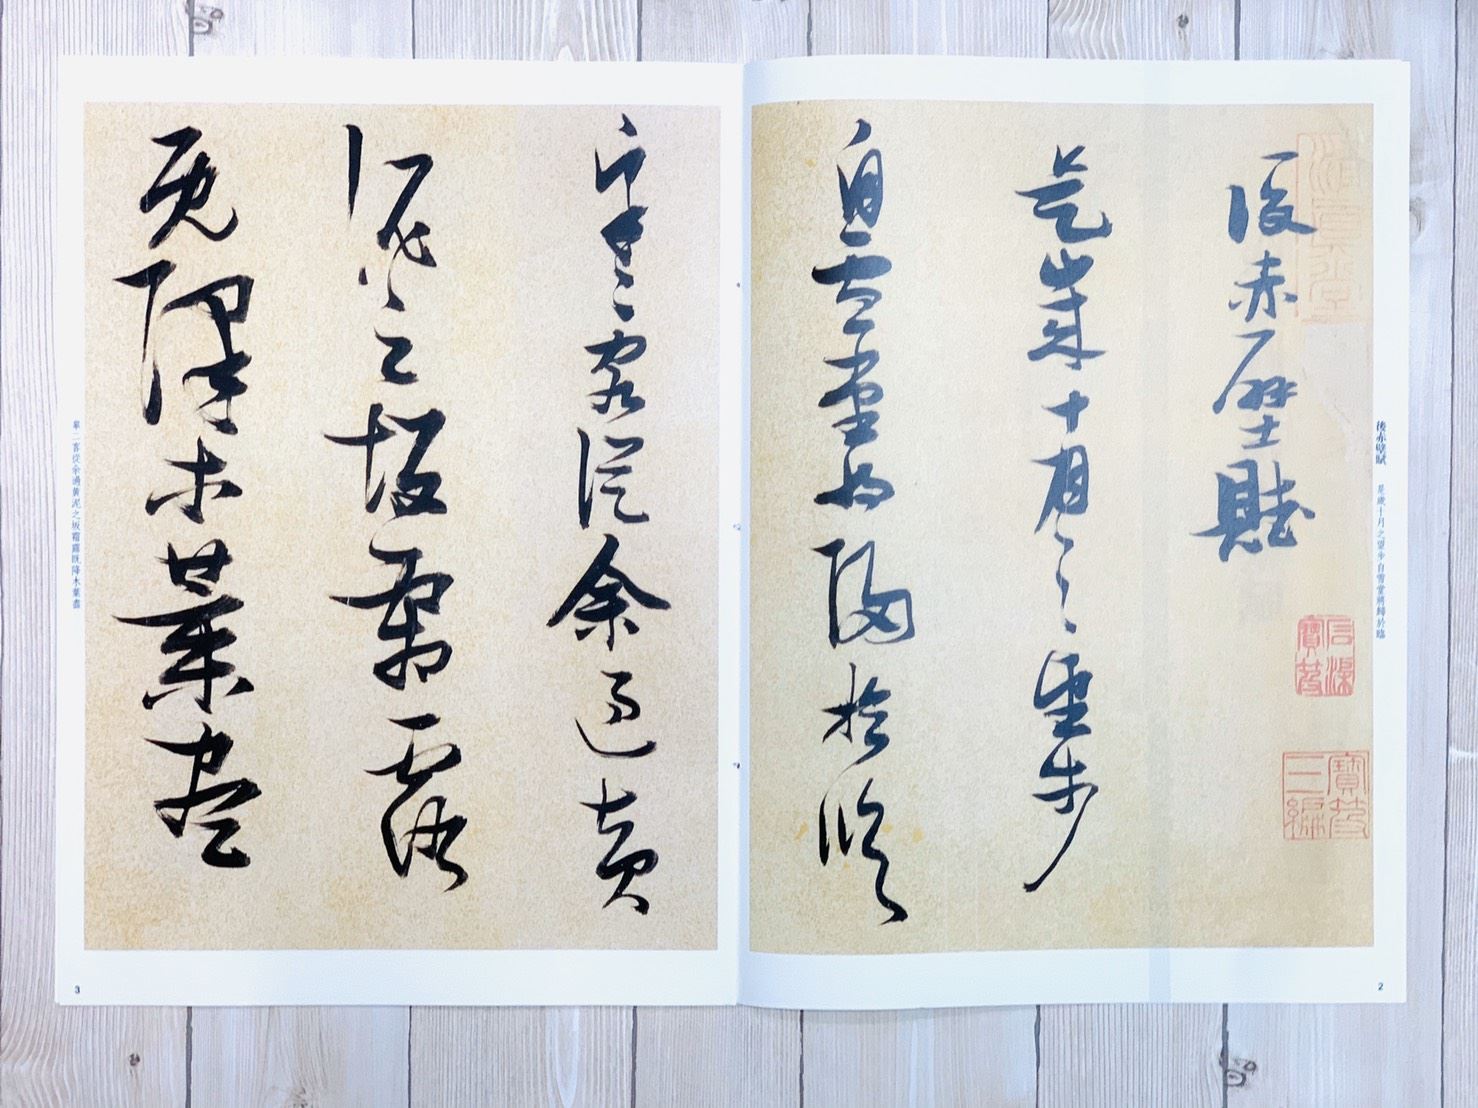 後赤壁賦
是歲十月之望步
自雪堂將歸於臨
皋二客從余過黃
泥之坂霜露
既降木葉盡
石渠寶笈
寶笈三編
後赤壁賦 是歲十月之望步自雪堂將歸於臨
2
皋二客從余過黃泥之坂霜露既降木葉盡
3